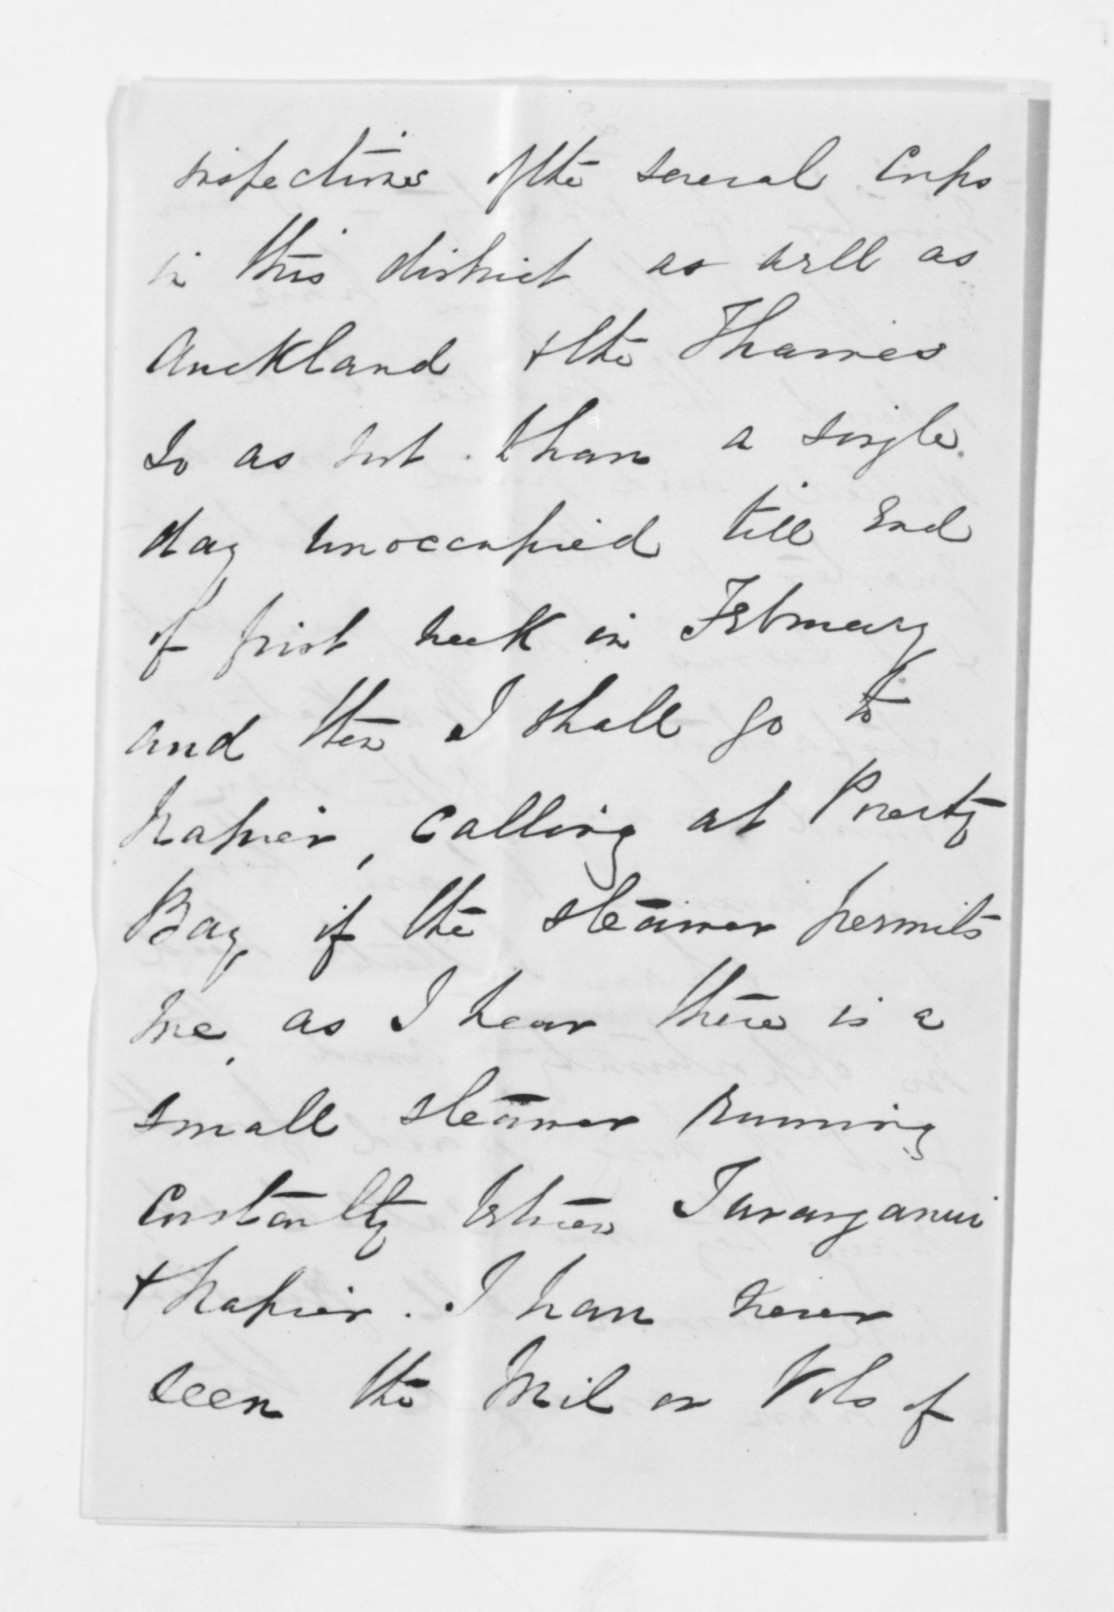 inspections of the several Corps
in this district as well as
Auckland & the Thames
so as not to have a single
day unoccupied till end
of first week in February
and then I shall go to
Napier, calling at Poverty
Bay, if the steamer permits
me, as I hear there is a
small steamer running
constantly between Turanganui
& Napier. I have never
seen the Mil or Vols of